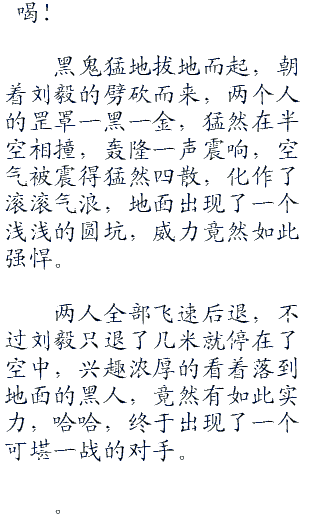 喝！
黑鬼猛地拔地而起，朝
着刘毅的劈砍而来，两个人
的罡罩一黑一金，猛然在半
空相撞，轰隆一声震响，空
气被震得猛然四散，化作了
滚滚气浪，地面出现了一个
浅浅的圆坑，威力竟然如此
强悍。
两人全部飞速后退，不
过刘毅只退了几米就停在了
空中，兴趣浓厚的看着落到
地面的黑人，竟然有如此实
力，哈哈，终于出现了一个
可堪一战的对手。
。